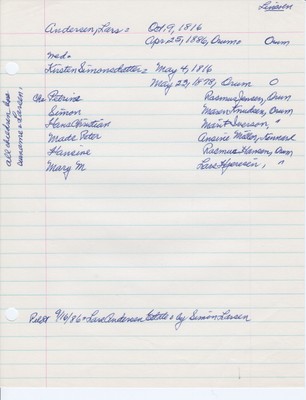 Larsen
Andersen, Lars = Oct 9, 1816
Apr 25, 1886, Orum = Orum
med =
Kirsten Simonsdatter = May 4, 1816
May 23, 1878, Orum O
Ch: Petrine Rasmus Jensen, Orum
Simon Maren Knudsen, Orum
Hans Christian Iverson, "
Mads Peter Ansine
Hansine Rasmus Hansen, Orum
Mary M Lars "
all children has surname = Larsen,
9/16/86 = Lars Andersen by Simon Larsen